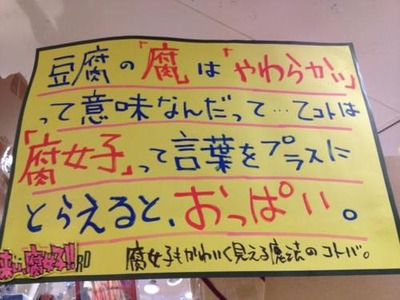 豆腐の「腐」は「やわらかいッ」
って意味なんだって…てコトは
「腐女子」って言葉をプラスに
とらえると、おっぱい。
腐女子もかわいく見える魔法のコトバ。
腐女子!!